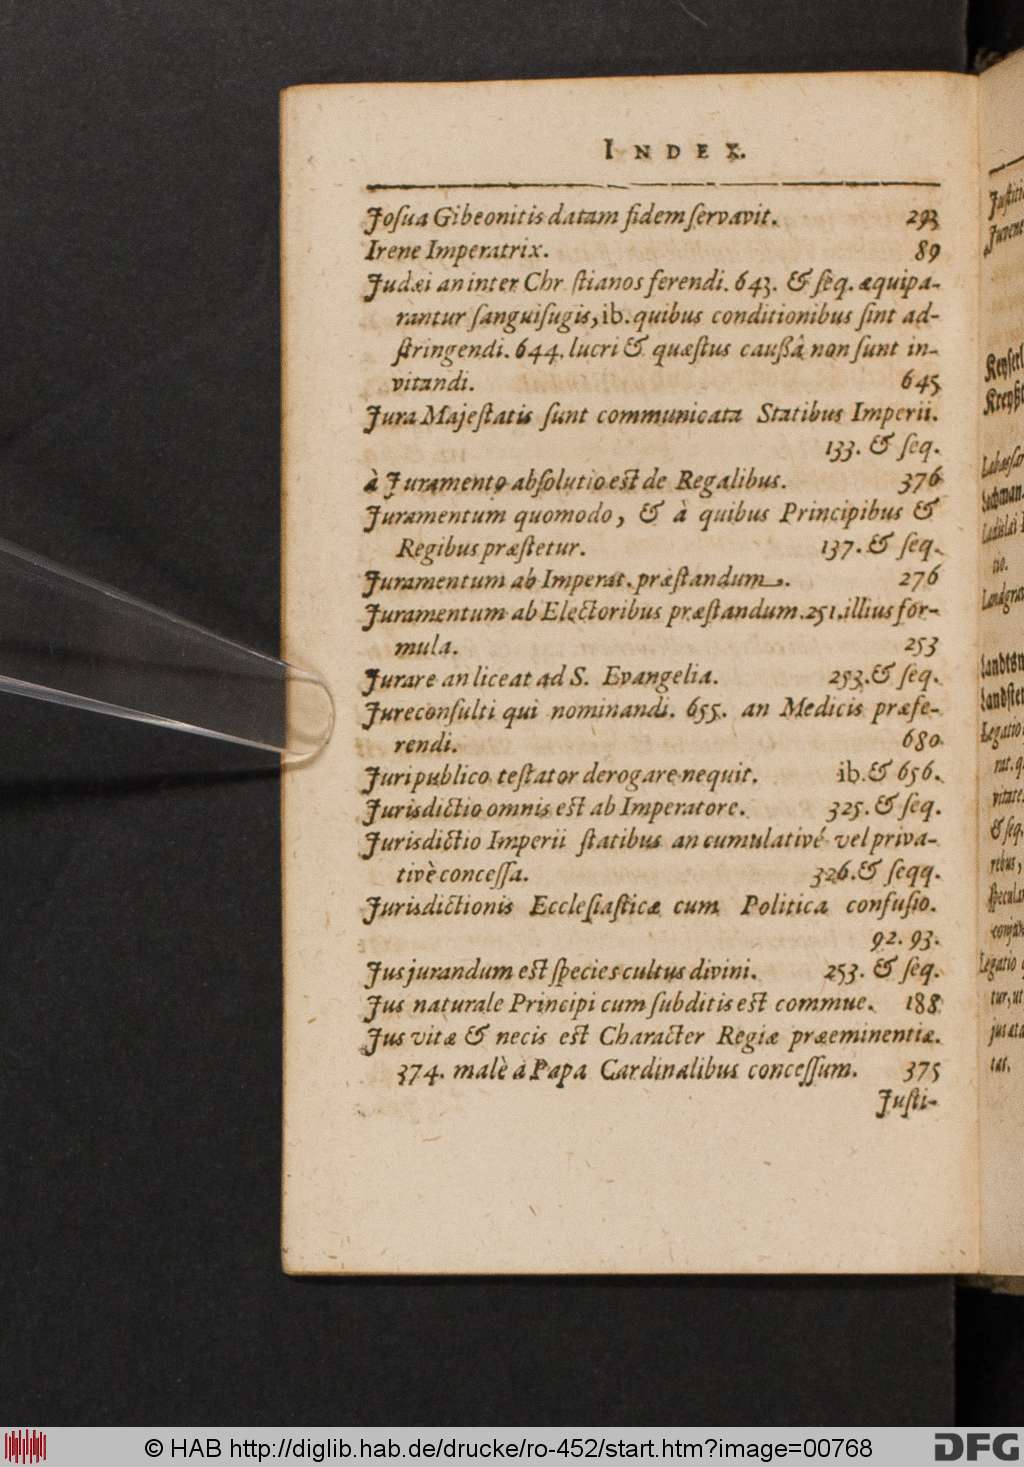 INDEX.
Josua Gibeonitis datam fidem servavit. 293
Irene Imperatrix. 89
Judæi an inter Chr stianos ferendi. 643. & seq. æquipa-
rantur sanguisugis, ib. quibus conditionibus sint ad-
stringendi. 644. lucri & quæstus caußâ non sunt in-
vitandi. 645
Jura Majestatis sunt communicata Statibus Imperii.
133. & seq.
à Juramento absolutio est de Regalibus. 376
Juramentum quomodo, & à quibus Principibus &
Regibus præstetur. 137. & seq.
Juramentum ab Imperat. præstandum. 276
Juramentum ab Electoribus præstandum. 251. illius for-
mula. 253
Jurare an liceat ad S. Evangelia. 253. & seq.
Jureconsulti qui nominandi. 655. an Medicis præfe-
rendi. 680
Juri publico testator derogare nequit. ib. & 656.
Jurisdictio omnis est ab Imperatore. 325. & seq.
Jurisdictio Imperii statibus an cumulativé vel priva-
tivè concessa. 326. & seqq.
Jurisdictionis Ecclesiasticæ cum Politica confusio.
92. 93.
Jusjurandum est species cultus divini. 253. & seq.
Jus naturale Principi cum subditis est commue. 188
Jus vitæ & necis est Character Regiæ præeminentiæ.
374. malè à Papa Cardinalibus concessum. 375
Justi-
Keyserl
Kreyßt
Lachman.
Ladislai
tio.
Landgra
Landst
Legatio
rat. q
vitate
& seq.
rebus,
specula
Legatio
tur, ut
jus ata
tat.
© HAB http://diglib.hab.de/drucke/ro-452/start.htm?image=00768
DFG